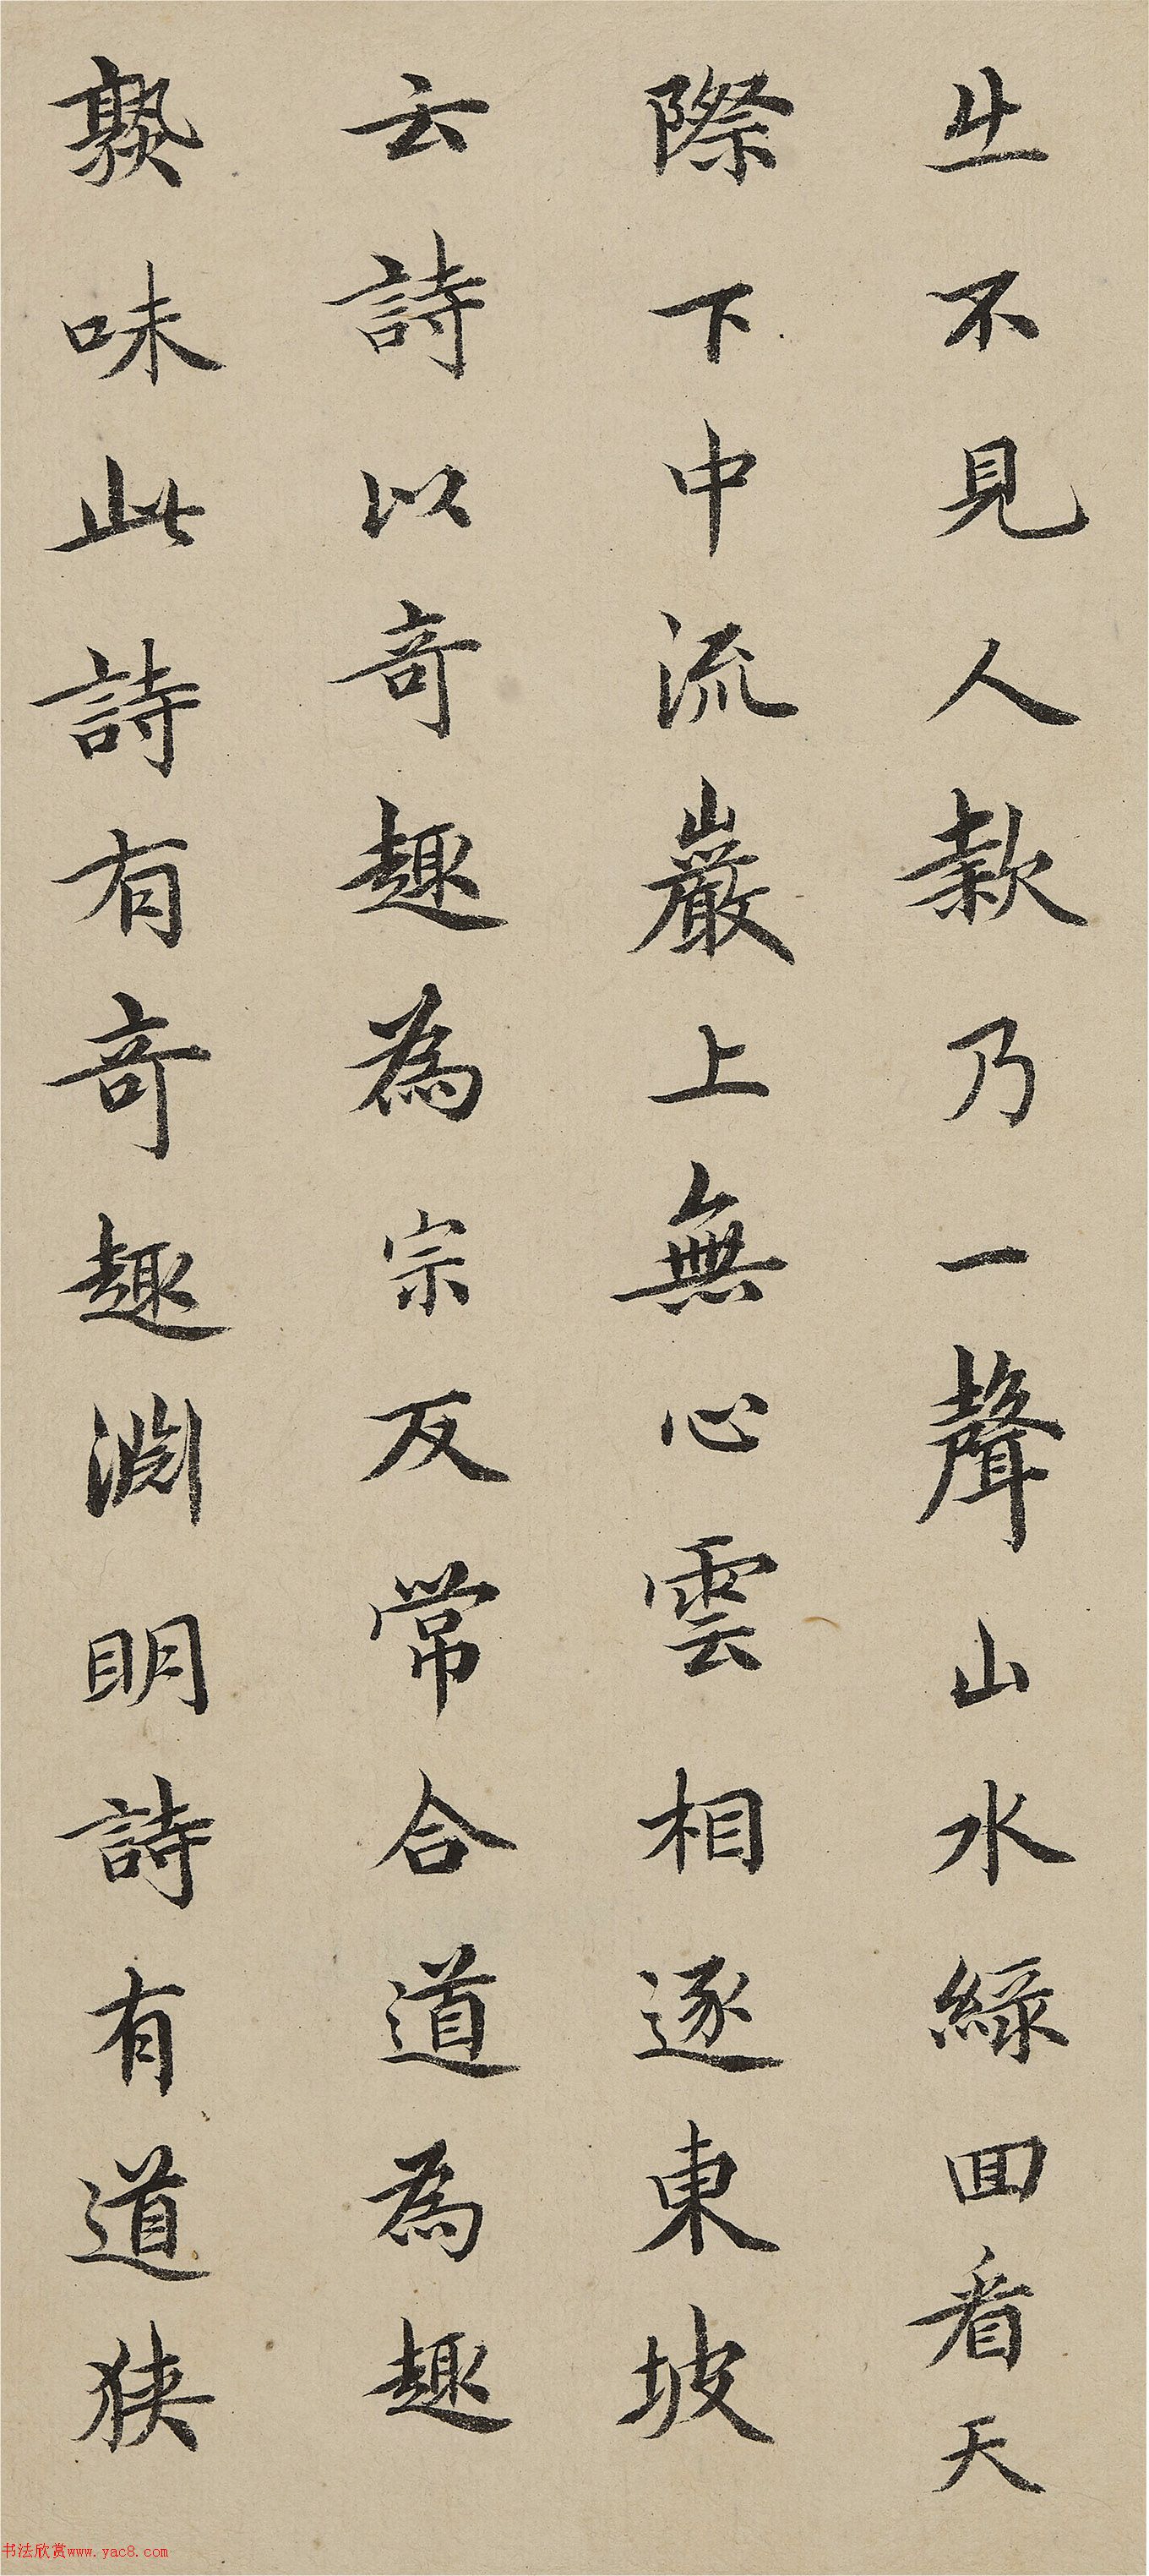 出不見人欸乃一聲山水綠回看天
際下中流巖上無心雲相逐東坡
云詩以奇趣為宗反常合道為趣
熟味此詩有奇趣淵明詩有道狹
书法欣赏www.yac8.com